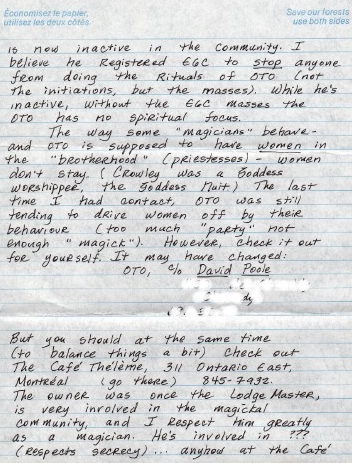 Économisez le papier,
utilisez les deux côtés
Save our forests
use both sides
is now inactive in the community. I
believe he Registered EGC to stop anyone
from doing the Rituals of OTO (not
the initiations, but the masses). While he's
inactive, without the EGC masses the
OTO has no spiritual focus.
The way some "magicians" behave -
and OTO is supposed to have women in
the "brotherhood" (priestesses) - women
don't stay. (Crowley was a Goddess
worshipper, the Goddess Nuit) The last
time I had contact, OTO was still
tending to drive women off by their
behaviour (too much "party" not
enough "magick"). However, check it out
for yourself. It may have changed:
OTO, c/o David Poole
But you should at the same time
(to balance things a bit) check out
The Café Thélème, 311 Ontario East,
Montréal (go there) 845-7932.
The owner was once the Lodge Master,
is very involved in the magickal
community, and I respect him greatly
as a magician. He's involved in ???
(respects secrecy)... anyhow at the Café